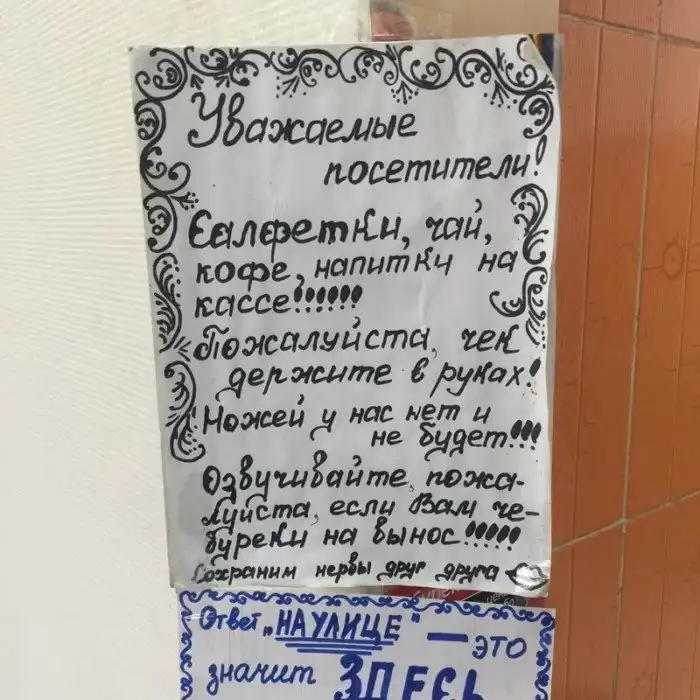 Уважаемые
посетители!
Салфетки, чай,
кофе, напитки на
кассе!!!!!!
Пожалуйста, чек
держите в руках!
Ножей у нас нет и
не будет!!!
Озвучивайте, пожа-
луйста, если Вам че-
буреки на вынос!!!!!
Сохраним нервы друг друга
Ответ „НА УЛИЦЕ" — ЭТО
значит ЗДЕСЬ